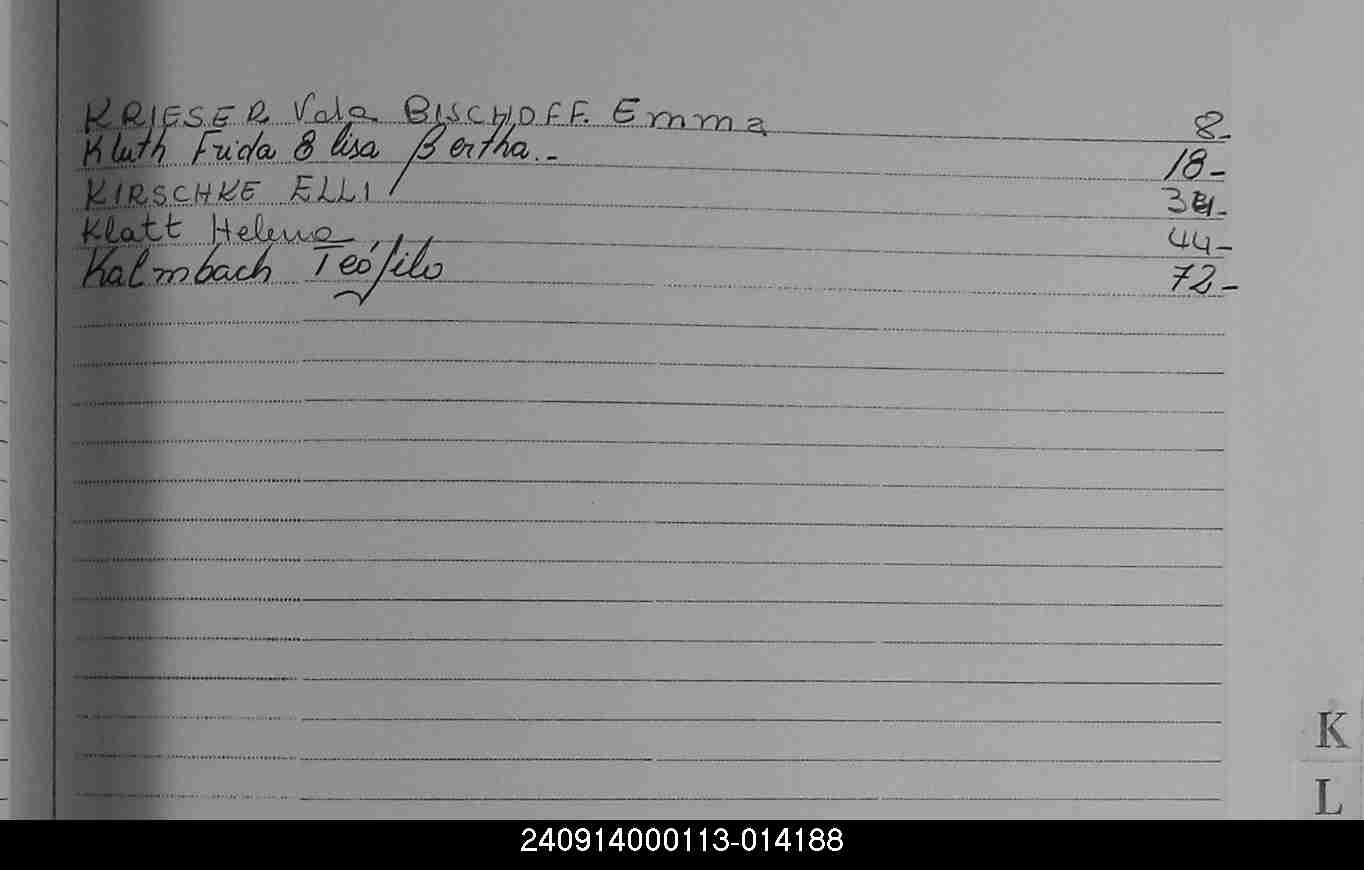 KRIESER Vda BISCHOFF. Emma 8-
Kluth Frida Elisa Bertha.- 18-
KIRSCHKE ELLI
Klatt Helena 44-
Kalmbach Teófilo 72-
K
L
240914000113-014188